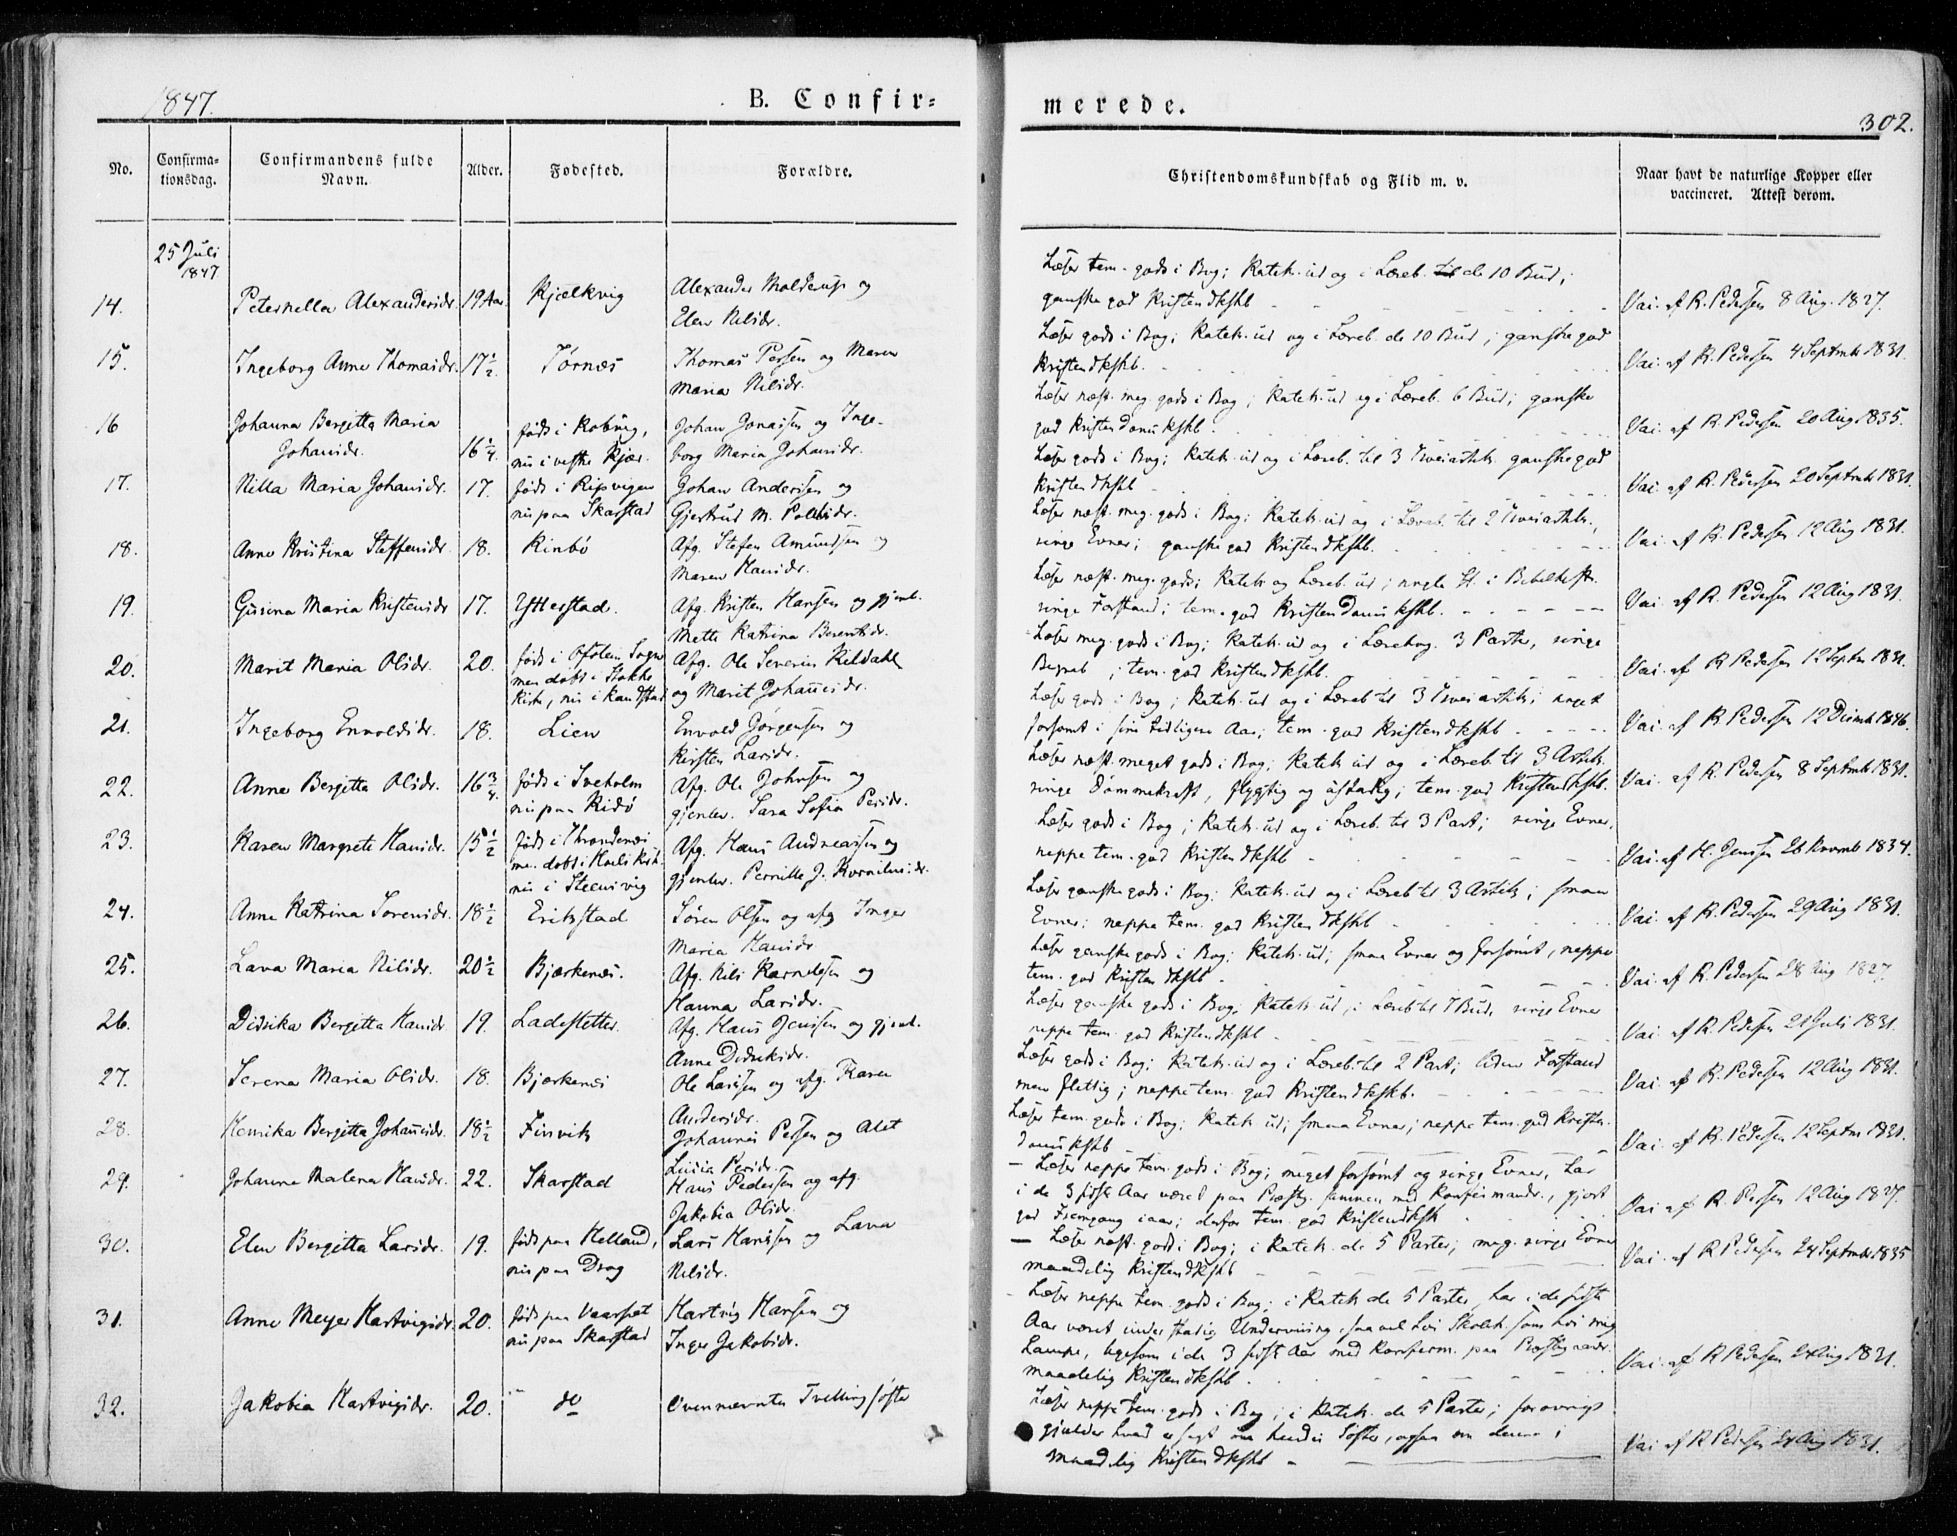 1847.
B. Confir=
merede.
302.
No.
Confirma-
tionsdag.
Confirmandens fulde
Navn.
Alder.
Fødested.
Forældre.
Christendomskundskab og Flid m. v.
Naar havt de naturlige Kopper eller
vaccineret. Attest derom.
25 Juli
1847
14.
Peternella Alexandersdr. 19 Aar. Kjælkvig
Alexander Molderup og
Elen Nilsdr.
Læser tem. gods i Bog; Katek. ud og i Læreb. til de 10 Bud;
ganske god Kristendkskb
Vai. af R. Pedersen 8 Aug. 1827.
15.
Ingeborg Anne Thomasdr. 17 1/2. Tørnæs
Thomas Persen og Maren
Maria Nilsdr.
Læser gods i Bog; Katek. ud og i Læreb. de 10 Bud; ganske god
Kristendkskb.
Vai. af R. Pedersen 4 Septmbr 1831.
16
Johanna Bergitta Maria
Johansdr. 16 1/4.
føds i Kobvig,
nu i vestre Kjær.
Johan Jonassen og Inge-
borg Maria Johansdr.
Læser næst. meg. gods i Bog; Katek. ud og i Læreb. 6 Bud; ganske
god Kristendomskskb.
Vai. af R. Pedersen 20 Aug 1835.
17.
Nilla Maria Johansdr. 17.
føds i Ripvigen
nu paa Skarstad
Johan Andersen og
Gjertrud M. Polsdr.
Læser gods i Bog; Katek. ud og i Læreb. til 3 Troesartik. ganske god
Kristendkskb
Vai. af R. Pedersen 20 Septmbr 1831.
18.
Anne Kristina Steffensdr. 18. Rinbø
Afg. Stefen Amundsen og
Maren Hansdr.
Læser næst. meg. gods i Bog; Katek. ud og i Læreb. til 2 Troesartik.;
ringe Evner; ganske god Kristendkskb.
Vai. af R. Pedersen 12 Aug 1831.
19.
Gusina Maria Kristensdr 17. Ytterstad.
Afg. Kristen Hansen og gjenl.
Mette Katrina Berentsdr.
Læser næst. meg. gods; Katek og Læreb. ud; nogle St. i Bibelhist.
ringe Forstand; tem. god Kristendomskskb.
Vai. af R. Pedersen 12 Aug 1831.
20.
Marit Maria Olsdr. 20.
føds i Ofoten Sogn
men døbt i Stokke
Kirke, nu i Kandstad
Afg. Ole Severin Kildahl
og Marit Johannesdr.
Læser meg. gods i Bog; Katek. ud og i Lærebog. 3 Parter, ringe
Begreb; tem. god Kristendkskb.
Vai. af R Pedersen 12 Septm 1831.
21.
Ingeborg Envoldsdr. 18. Lien
Envold Jørgensen og
Kirsten Larsdr.
Læser gods i Bog; Katek. ud og i Læreb til 3 Troesartik; noget
forsømt i sine tidligere Aar; tem. god Kristendkskb
Vai. af R Pedersen 12 Decmbr 1846.
22.
Anne Bergitta Olsdr. 16 3/4.
føds i Sveholm
nu paa Ridø
Afg. Ole Johnsen og
gjenlev. Sara Sofia Persdr.
Læser næst. meget gods i Bog; Katek ud og i Læreb til 3 Artik.
ringe Dømmekraft, flygtig og ustadig; tem. god Kristendkskb.
Vai. af R. Pedersen 8 Septmbr 1831.
23.
Karen Margrete Hansdr. 15 1/2
føds i Throndenæs
me. døbt i Hols Kirk.
nu i Steensvig
Afg. Hans Andreassen og
gjenlev. Pernille J. Kornelusdr.
Læser gods i Bog; Katek. ud og i Læreb. til 3 Part; ringe Evner,
neppe tem. god Kristendkskb
Vai. af H. Jenssen 26 Novmb 1834.
24.
Anne Katrina Sørensdr. 18 1/2 Erikstad
Søren Olsen og afg Inger
Maria Hansdr
Læser ganske gods i Bog; Katek. ud og i Læreb til 3 Artik; smaa
Evner; neppe tem. god Kristendkskb
Vai. af R. Pedersen 29 Aug 1831.
25.
Lava Maria Nilsdr. 20 1/2 Bjærkenæs.
Afg. Nils Kornelesen og
Hanna Larsdr.
Læser ganske gods i Bog; Katek. ud; smaa Evner og forsømt, neppe
tem. god Kristendkskb
Vai. af R. Pedersen 28 Aug 1827.
26.
Didrika Bergetta Hansdr 19. Ladestetter.
Afg. Hans Jenssen og gjenl.
Anne Didriksdr.
Læser ganske gods i Bog; Katek. ud, i Læreb til 7 Bud, ringe Evner
neppe tem. god Kristendkskb
Vai. af R. Pedersen 21 Juli 1831.
27.
Serena Maria Olsdr. 18. Bjærkenæs
Ole Larssen og afg. Karen
Andersdr.
Læser gods i Bog; Katek. ud og i Læreb. til 2 Part; liden Forstand
men flittig; neppe tem. god Kristendkskb.
Vai. af R. Pedersen 12 Aug 1831.
28.
Henrika Bergitta Johannesdr. 18 1/2 Finvik
Johannes Persen og Alet
Lusia Persdr.
Læser tem. gods i Bog; Katek ud; smaa Evner; neppe tem. god Kristen-
domskskb
Vai. af R. Pedersen 12 Septm 1831.
29.
Johanna Malena Hansdr. 22. Skarstad
Hans Pedersen og afg.
Jakobia Olsdr.
Læser neppe tem. gods i Bog; meget forsømt og ringe Evner, har
i de 3 sidste Aar været paa Præstg. sammen med Konfirmandr., gjort
god Fremgang iaar; derfor tem. god Kristendkskb
Vai af R. Persen 12 Aug 1827.
30.
Elen Bergitta Larsdr. 19.
føds paa Helland,
nu paa Drag
Lars Hanssen og Lava
Nilsdr.
Læser næst. gods i Bog; i Katek. de 5 Parter; meg. ringe Evner
maadelig Kristendkskb
Vai. af R Pedersen 24 Septmbr 1835
31.
Anne Meyer Hartvigsdr. 20.
føds paa Vaarset
nu paa Skarstad
Hartvig Hansen og
Inger Jakobsdr.
Læser neppe tem. gods i Bog; i Katek de 5 Parter, har i de sidste
Aar været under stadig Undervisning, saavel hos Skoleh. som hos mig
ligesom i de 3 sidste Aar med Konfirm. paa Præstegaard.
maadelig Kristendkskb.
Vai. af R Pedersen 24 Aug 1831.
32.
Jakobia Hartvigsdr. 20. do
Ovennævntes Tvillingsøster
Læser neppe tem. gods i Bog; i Katek. de 5 Parter; forøvrigt
gjælder hvad er sagt om hendes Søster, ogsaa om denne;
maadelig Kristendkskb
Vai. af R Pedersen 24 Aug 1831.